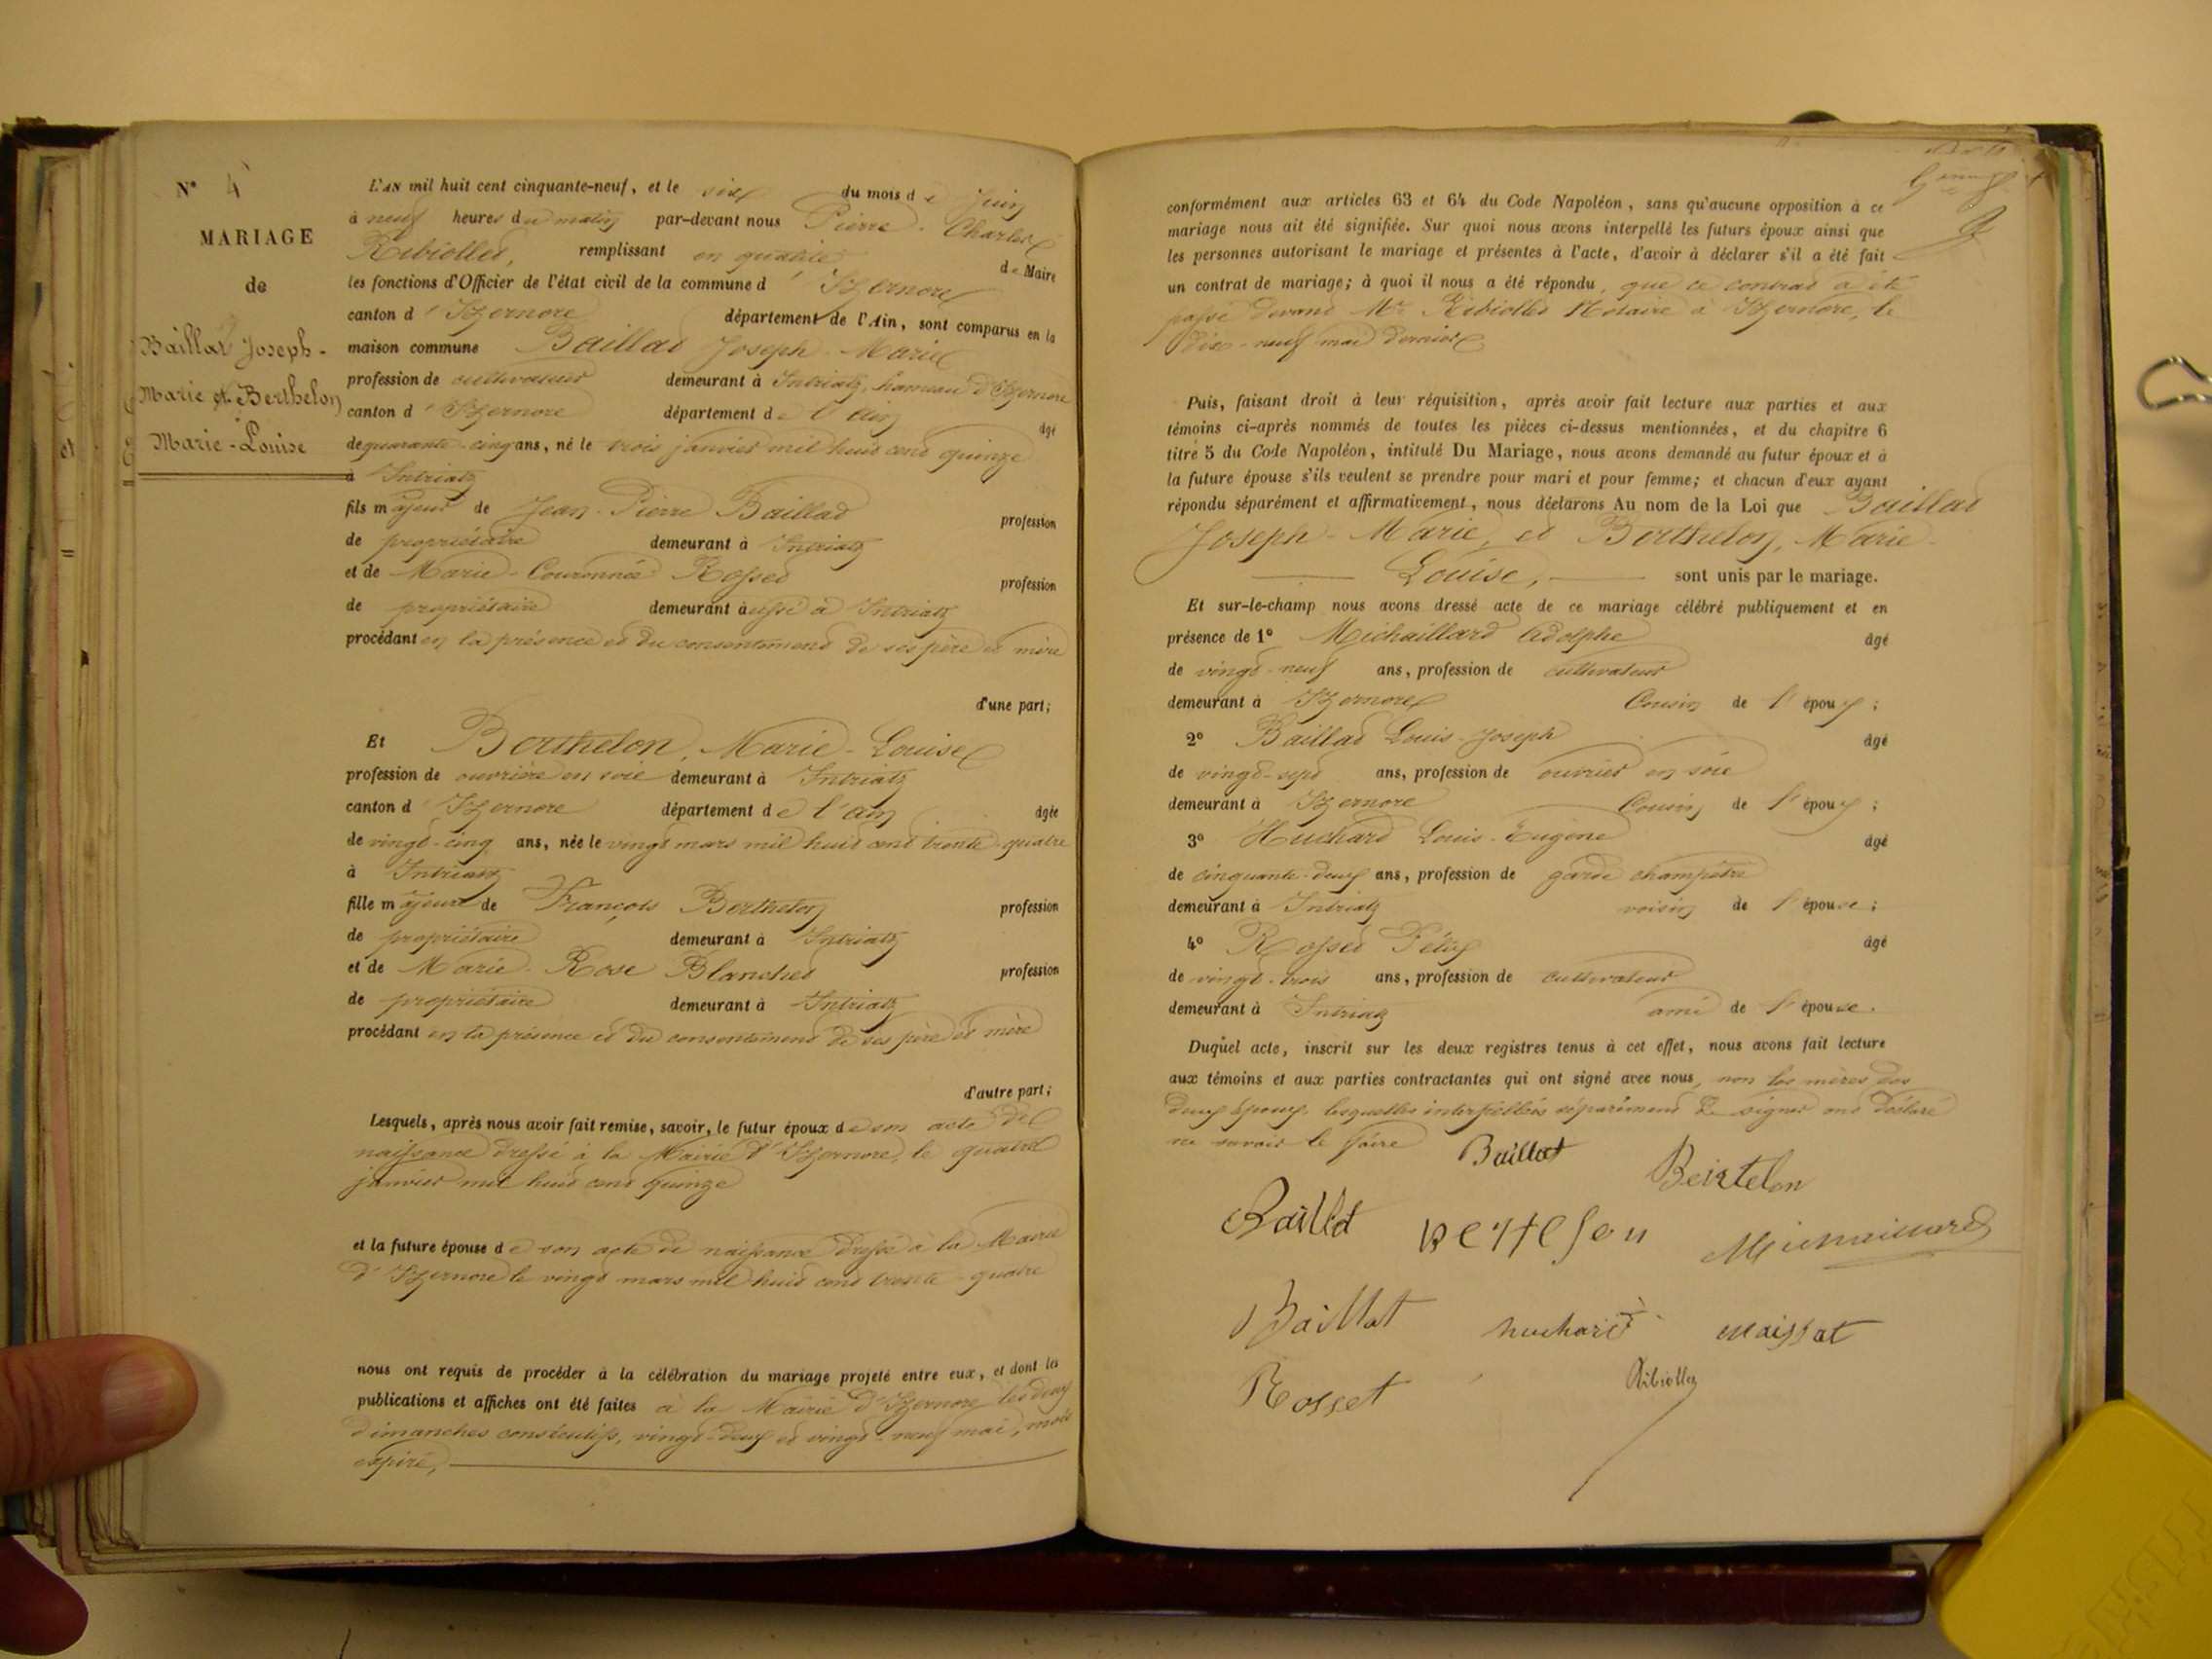 N° 4
MARIAGE
de
Baillat Joseph-
Marie et Berthelon
Marie-Louise
L'AN mil huit cent cinquante-neuf, et le six du mois de Juin
à neuf heures du matin par-devant nous Pierre-Charles
Ribiollet, remplissant en qualité de Maire
les fonctions d'Officier de l'état civil de la commune d'Izernore
canton d'Izernore département de l'Ain, sont comparus en la
maison commune Baillat Joseph-Marie
profession de cultivateur demeurant à Intriatz, hameau d'Izernore
canton d'Izernore département de l'ain âgé
de quarante-cinq ans, né le trois janvier mil huit cent quinze
à Intriatz
fils majeur de Jean-Pierre Baillat profession
de propriétaire demeurant à Intriatz
et de Marie-Couronnée Rosset profession
de propriétaire demeurant aussi à Intriatz
procédant en la présence et du consentement de ses père et mère
d'une part;
Et Berthelon, Marie-Louise
profession de ouvrière en soie demeurant à Intriatz
canton d'Izernore département de l'ain âgée
de vingt-cinq ans, née le vingt mars mil huit cent trente-quatre
à Intriatz
fille majeure de François Berthelon profession
de propriétaire demeurant à Intriatz
et de Marie-Rose Blanchet profession
de propriétaire demeurant à Intriatz
procédant en la présence et du consentement de ses père et mère
d'autre part;
Lesquels, après nous avoir fait remise, savoir, le futur époux de son acte de
naissance dressé à la Mairie d'Izernore, le quatre
janvier mil huit cent quinze
et la future épouse de son acte de naissance dressé à la Mairie
d'Izernore le vingt mars mil huit cent trente-quatre
nous ont requis de procéder à la célébration du mariage projeté entre eux, et dont les
publications et affiches ont été faites à la Mairie d'Izernore les deux
dimanches consécutifs, vingt-deux et vingt-neuf mai, mois
expiré,
conformément aux articles 63 et 64 du Code Napoléon, sans qu'aucune opposition à ce
mariage nous ait été signifiée. Sur quoi nous avons interpellé les futurs époux ainsi que
les personnes autorisant le mariage et présentes à l'acte, d'avoir à déclarer s'il a été fait
un contrat de mariage; à quoi il nous a été répondu, que ce contrat a été
passé devant Me Ribiollet Notaire à Izernore, le
dix-neuf mai dernier
Puis, faisant droit à leur réquisition, après avoir fait lecture aux parties et aux
témoins ci-après nommés de toutes les pièces ci-dessus mentionnées, et du chapitre 6
titre 5 du Code Napoléon, intitulé Du Mariage, nous avons demandé au futur époux et à
la future épouse s'ils veulent se prendre pour mari et pour femme; et chacun d'eux ayant
répondu séparément et affirmativement, nous déclarons Au nom de la Loi que Baillat
Joseph-Marie, et Berthelon, Marie-
Louise, sont unis par le mariage.
Et sur-le-champ nous avons dressé acte de ce mariage célébré publiquement et en
présence de 1° Michaillard Adolphe âgé
de vingt-neuf ans, profession de cultivateur
demeurant à Izernore Cousin de l'époux;
2° Baillat Louis-Joseph âgé
de vingt-sept ans, profession de ouvrier en soie
demeurant à Izernore Cousin de l'époux;
3° Huchard Louis-Eugène âgé
de cinquante-deux ans, profession de garde champêtre
demeurant à Intriatz voisin de l'épouse;
4° Rosset Félix âgé
de vingt-trois ans, profession de cultivateur
demeurant à Intriatz ami de l'épouse.
Duquel acte, inscrit sur les deux registres tenus à cet effet, nous avons fait lecture
aux témoins et aux parties contractantes qui ont signé avec nous, non les mères des
deux époux, lesquelles interpellées séparément de signer ont déclaré
ne savoir le faire Baillat Beirtelon
Baillat Michaillard
Baillat huchard maissat
Rosset Ribiollet